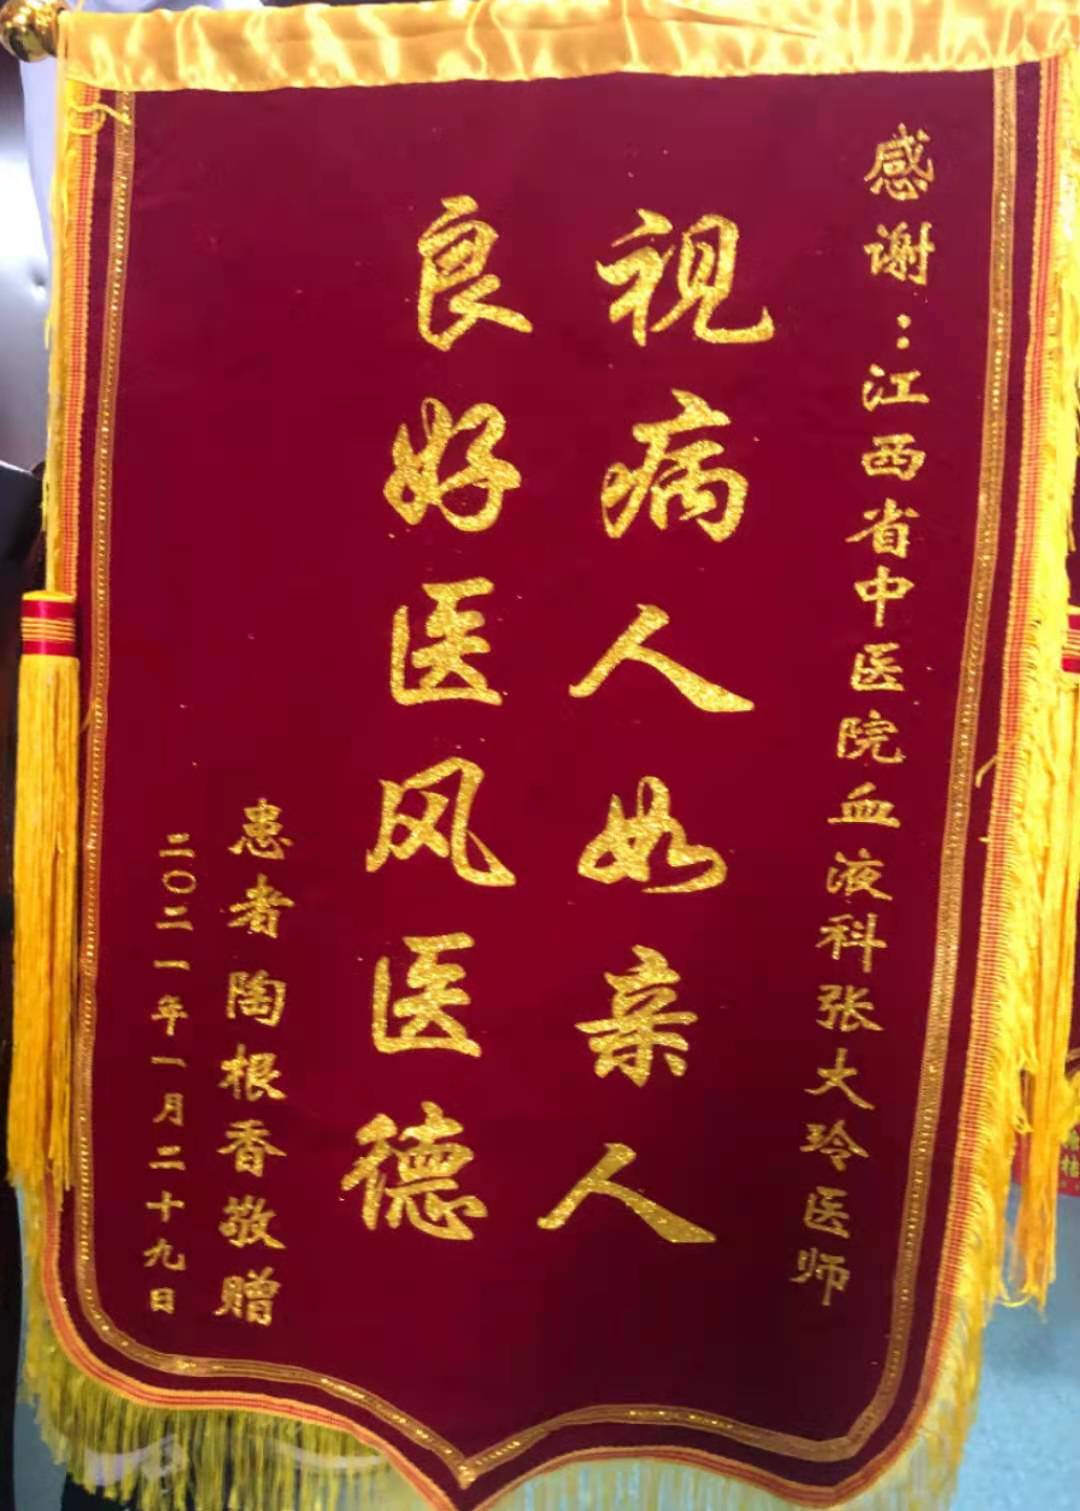 感谢：江西省中医院血液科张大玲医师
视病人如亲人
良好医风医德
患者陶根香敬赠
二〇二一年一月二十九日